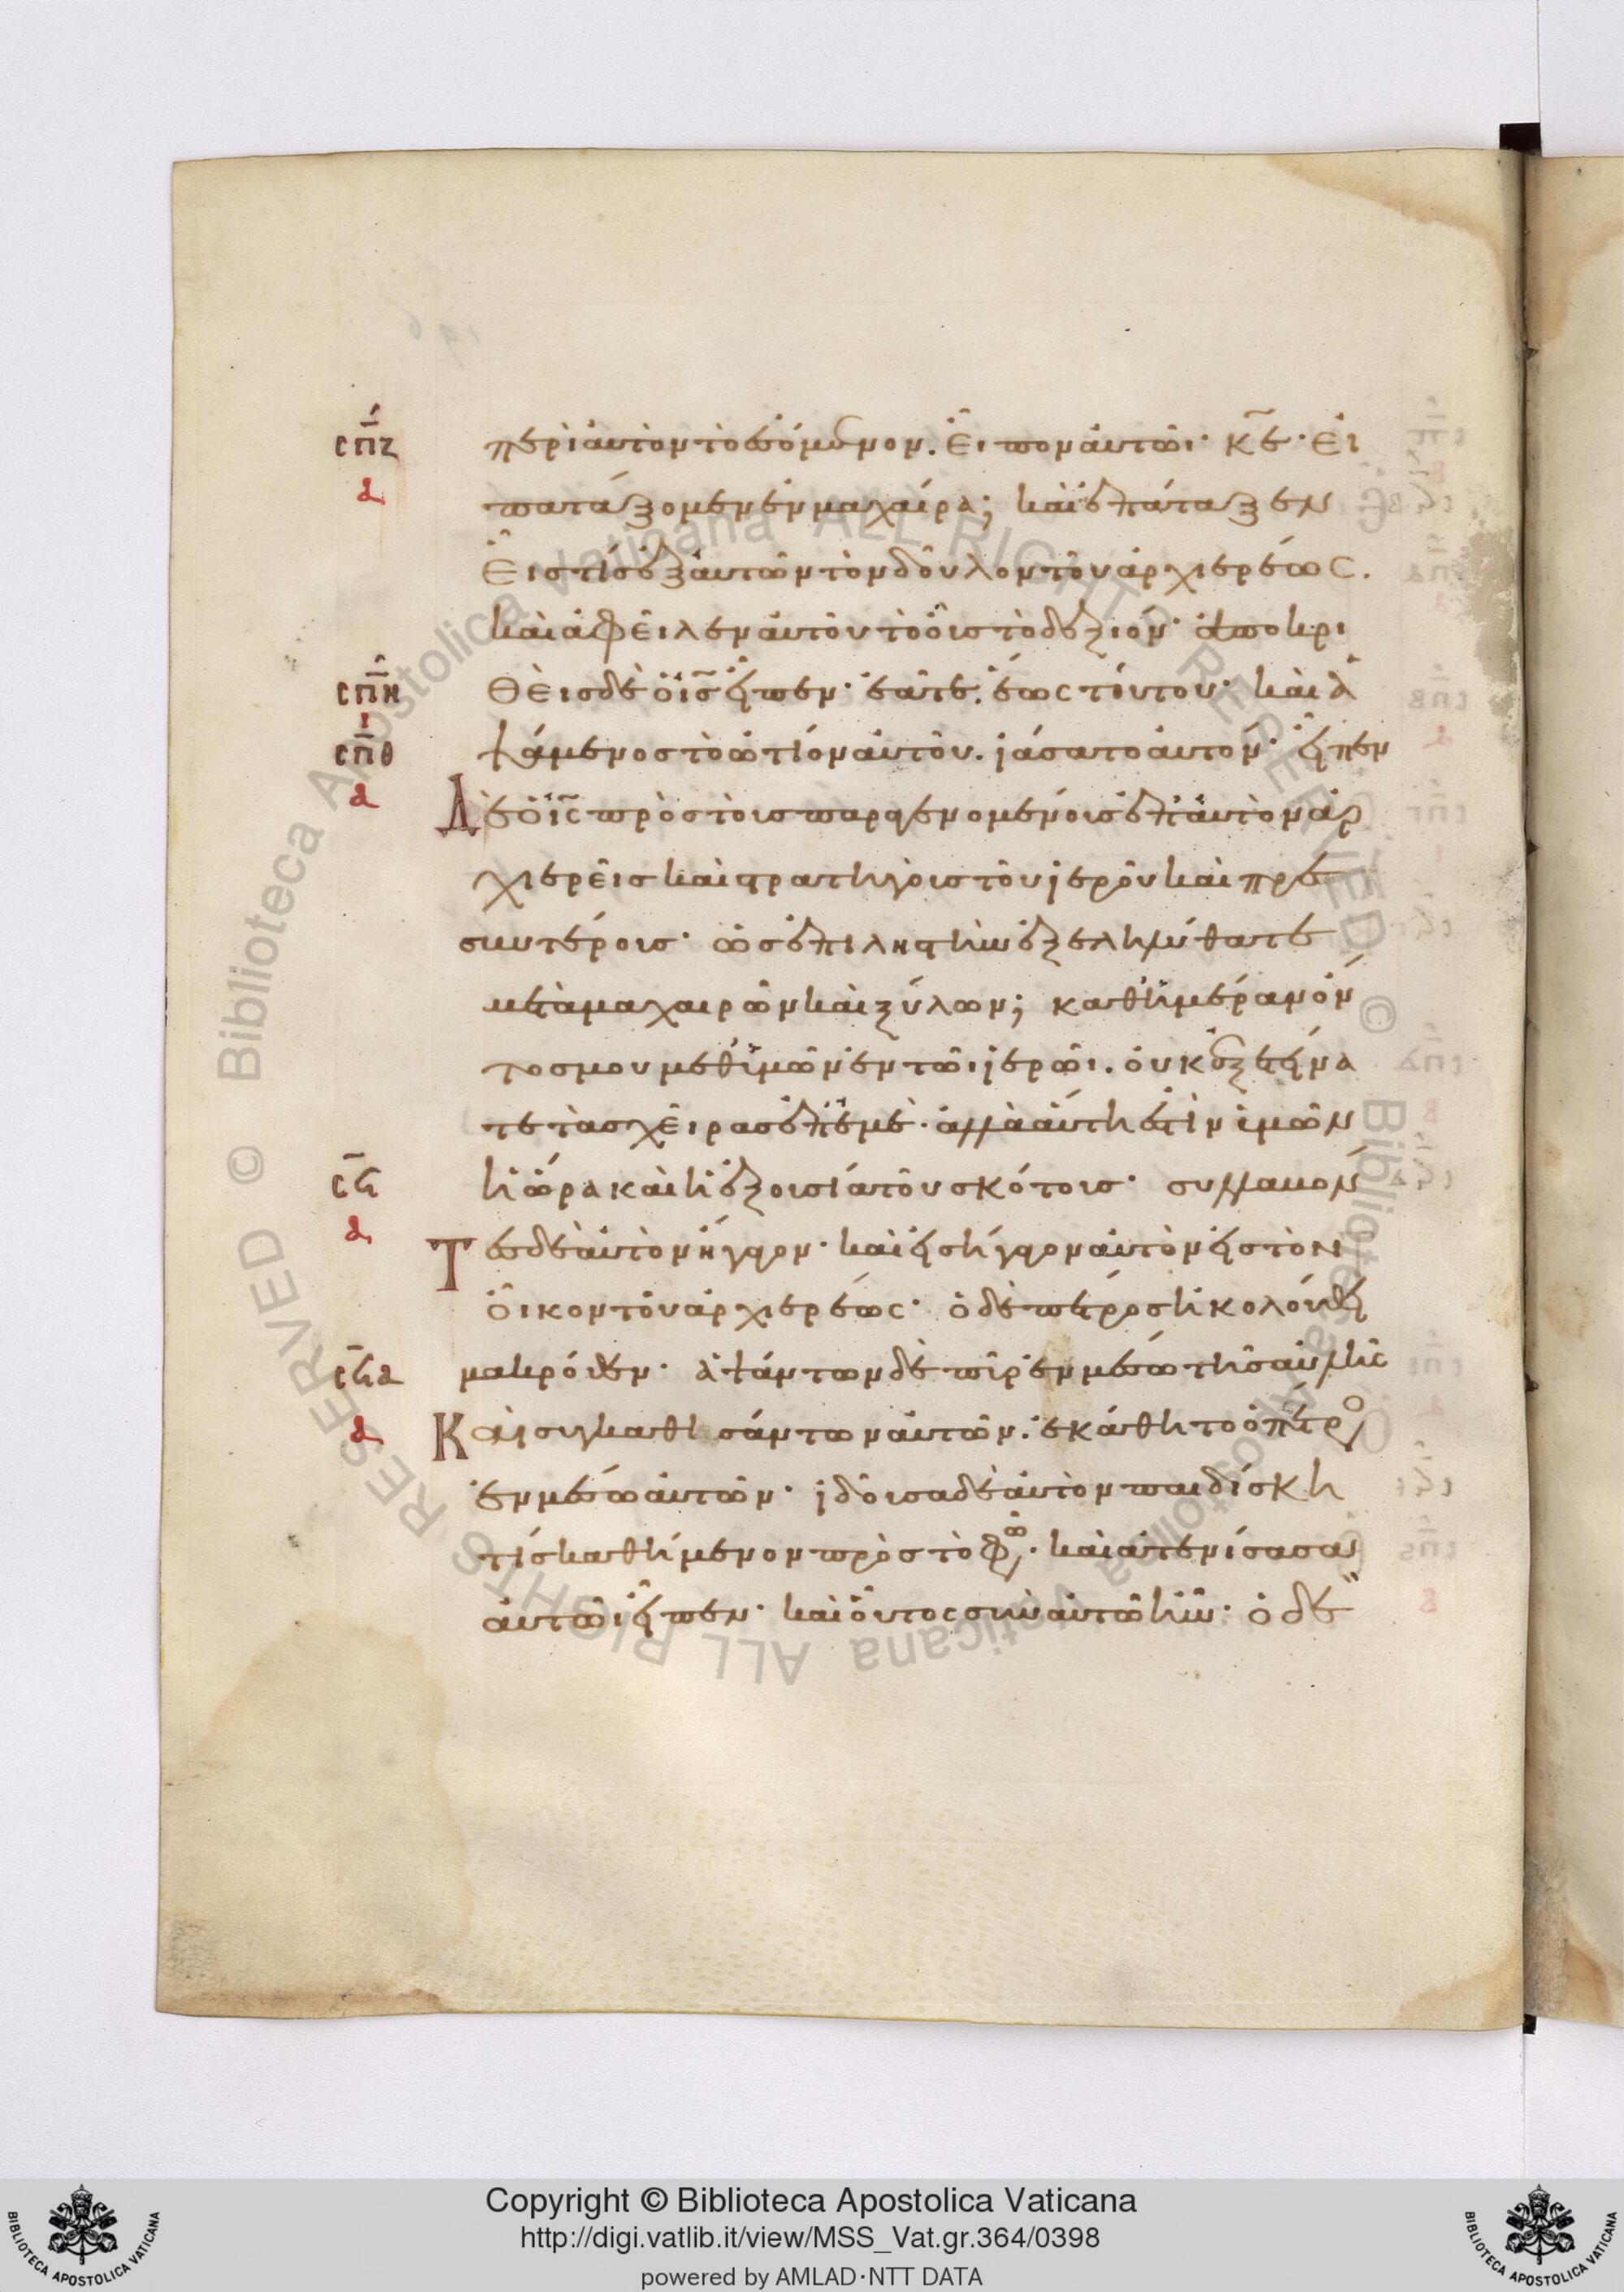 σπζ περὶ αὐτὸν τὸ ἐσόμενον. εἶπον αὐτῶι· κε· εἰ
α πατάξομεν ἐν μαχαίρα; καὶ ἐπάταξεν
εἷς τίς ἐξ αὐτῶν τὸν δοῦλον τοῦ ἀρχιερέως.
καὶ ἀφεῖλεν αὐτοῦ τὸ οὖς τὸ δεξιόν· ἀποκρι
σπη θεὶς δὲ ὁ ις εἶπεν· ἐᾶτε. ἕως τούτου· καὶ ἁ
ι
σπθ ψάμενος τὸ ὠτίον αὐτοῦ. ἰάσατο αὐτόν· εἶπεν
α Δὲ ὁ ις πρὸς τοὺς παραγενομένους ἐπ' αὐτὸν ἀρ
χιερεῖς καὶ στρατηγοὺς τοῦ ἱεροῦ καὶ πρε
σβυτέρους· ὡς ἐπὶ ληστὴν ἐξεληλύθατε
μετὰ μαχαιρῶν καὶ ξύλων; καθ' ἡμέραν ὄν
τος μου μεθ' ὑμῶν ἐν τῶι ἱερῶι. οὐκ ἐξετείνα
τε τὰς χεῖρας ἐπ' ἐμέ· ἀλλὰ αὕτη ἐστὶν ὑμῶν
σϟ ἡ ὥρα καὶ ἡ ἐξουσία τοῦ σκότους· συλλαβόν
α Τες δὲ αὐτὸν ἤγαγον· καὶ εἰσήγαγον αὐτὸν εἰς τὸν
οἶκον τοῦ ἀρχιερέως· ὁ δὲ πέτρος ἠκολούθει
σϟα μακρόθεν· ἁψάντων δὲ πῦρ ἐν μέσω τῆς αὐλῆς
α Καὶ συγκαθισάντων αὐτῶν. ἐκάθητο ὁ πέτρος
ἐν μέσω αὐτῶν· ἰδοῦσα δὲ αὐτὸν παιδίσκη
τίς καθήμενον πρὸς τὸ φῶς· καὶ ἀτενίσασα
αὐτῶι εἶπεν· καὶ οὗτος σὺν αὐτῶ ἦν· ὁ δὲ
© Biblioteca Apostolica Vaticana ALL RIGHTS RESERVED © Biblioteca Apostolica Vaticana ALL RIGHTS RESERVED
Copyright © Biblioteca Apostolica Vaticana
http://digi.vatlib.it/view/MSS_Vat.gr.364/0398
powered by AMLAD·NTT DATA
BIBLIOTECA APOSTOLICA VATICANA
BIBLIOTECA APOSTOLICA VATICANA